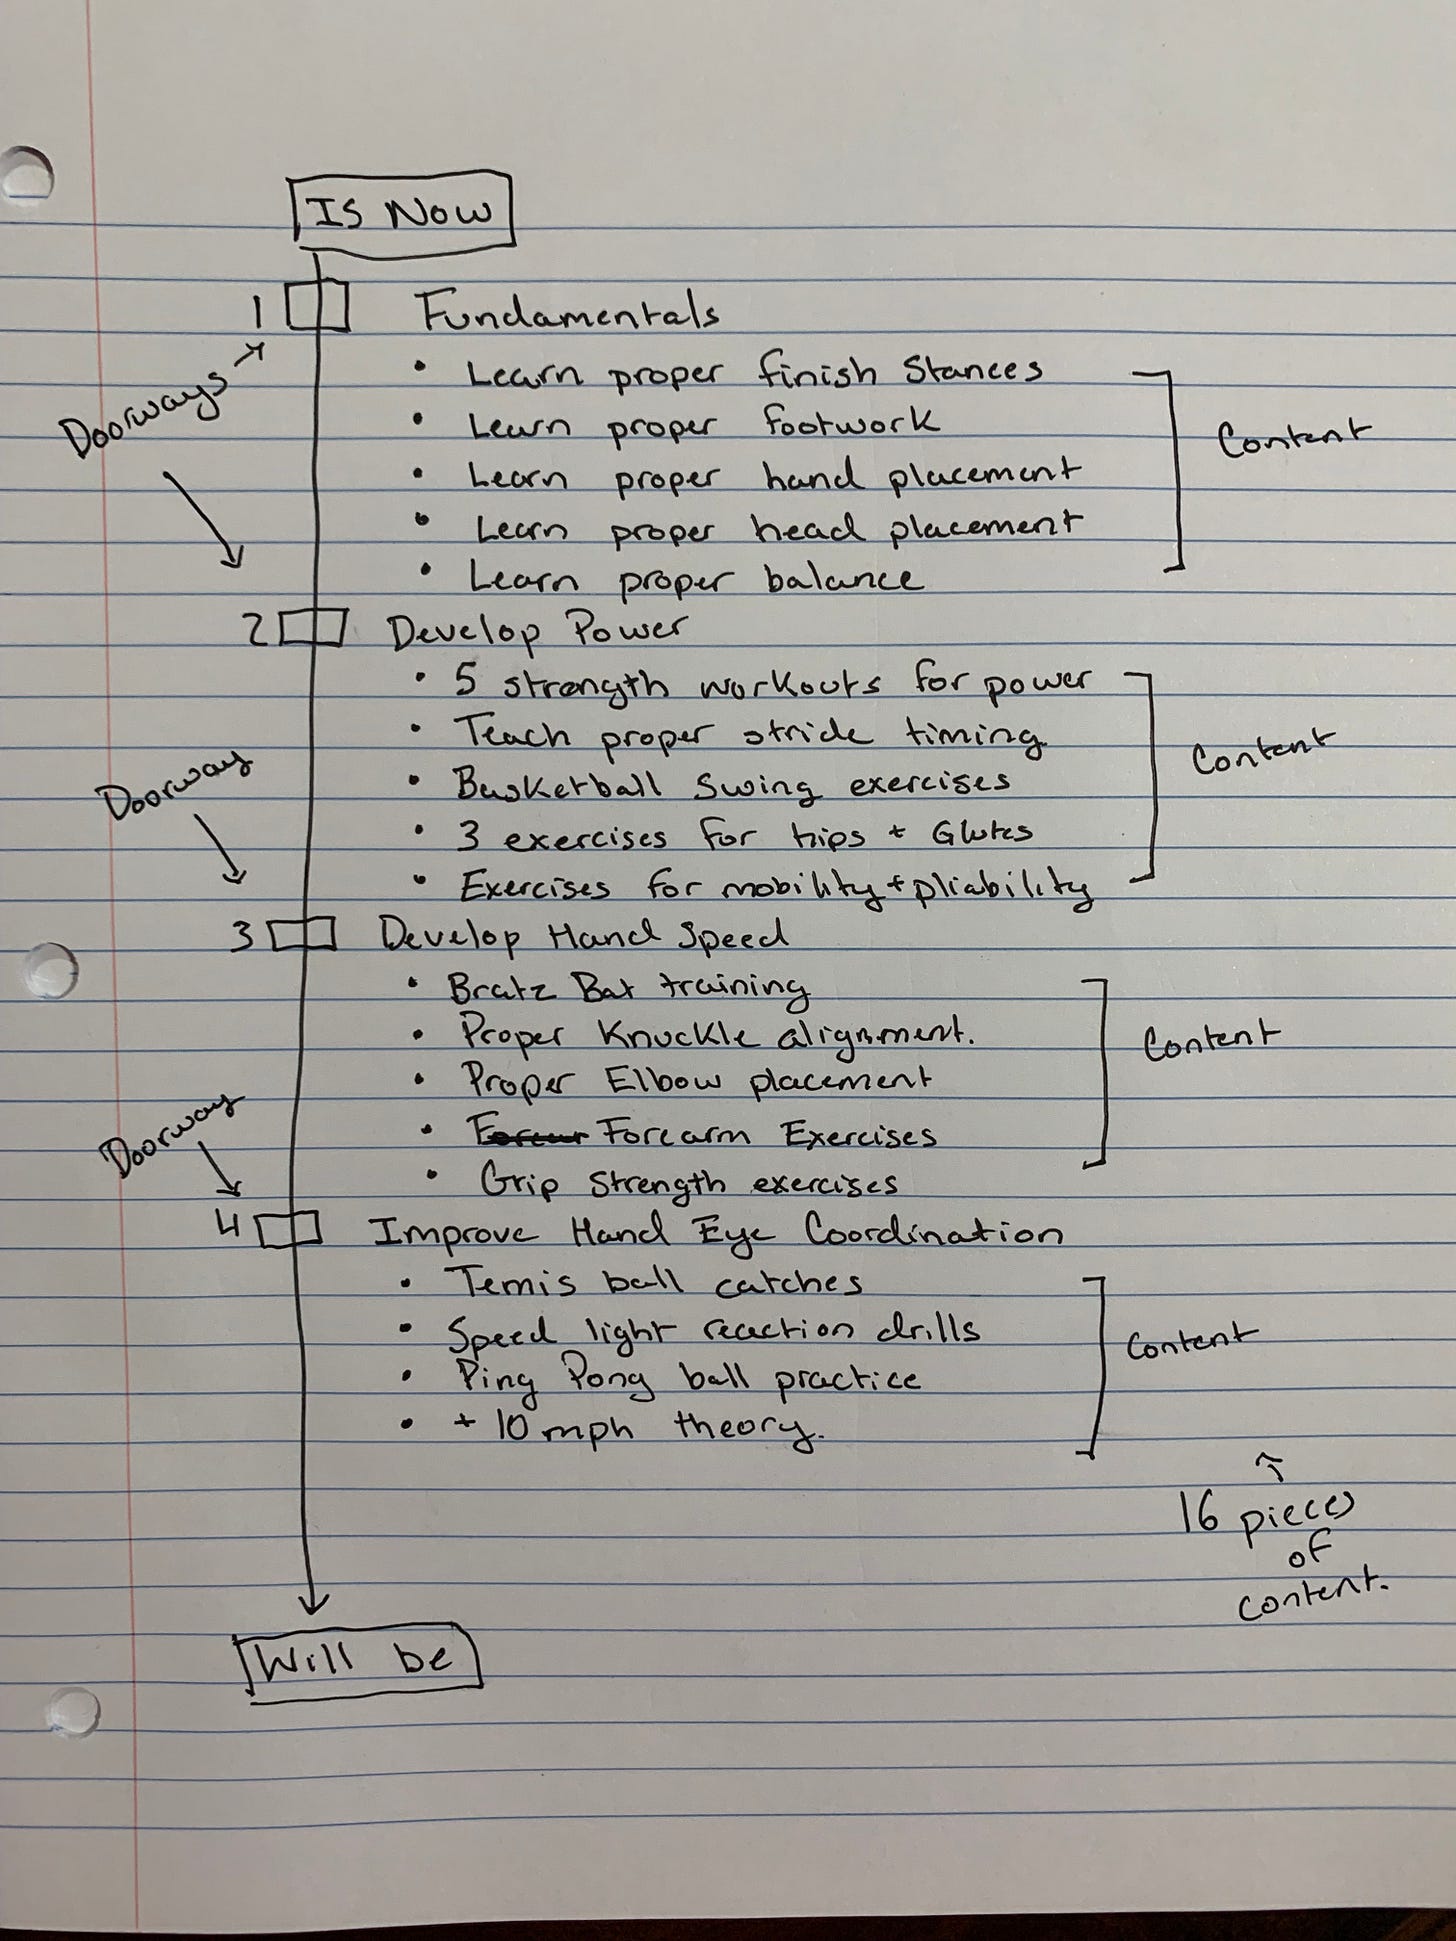 Is Now
1 Fundamentals
Doorways
• Learn proper finish Stances
• Learn proper footwork
• Learn proper hand placement
• Learn proper head placement
• Learn proper balance
Content
2 Develop Power
• 5 strength workouts for power
• Teach proper stride timing
• Basketball Swing exercises
• 3 exercises for hips + Glutes
• Exercises for mobility + pliability
Content
Doorway
3 Develop Hand Speed
• Bratz Bat training
• Proper Knuckle alignment.
• Proper Elbow placement
• Forearm Exercises
• Grip Strength exercises
Content
Doorway
4 Improve Hand Eye Coordination
• Tennis ball catches
• Speed light reaction drills
• Ping Pong ball practice
• + 10 mph theory.
Content
16 pieces
of
content.
Will be